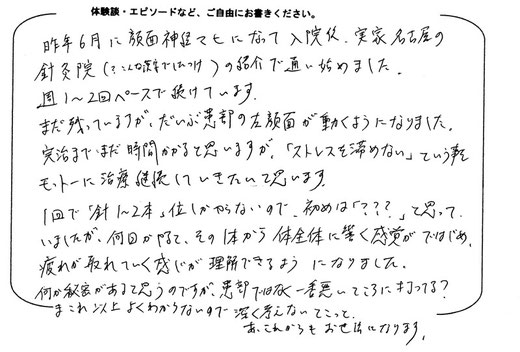 体験談・エピソードなど、ご自由にお書きください。
昨年6月に顔面神経マヒになって入院後、実家名古屋の
針灸院( )の紹介で通い始めました。
週1〜2回ペースで続けています。
まだ残っていますが、だいぶ患部の左顔面が動くようになりました。
完治までまだ時間かかると思いますが、「ストレスを溜めない」という事を
モットーに治療継続していきたいと思います。
1回で「針1〜2本」位しかやらないので、初めは「???」と思って
いましたが、何回かやるで、その1本から体全体に響く感覚がではじめ、
疲れが取れていく感じが理解できるようになりました。
何か秘密があると思うのですが、患部ではなく一番悪いところに打ってる?
まこれ以上よくわからないので深く考えないでこって、
あ、これからもお世話になります。